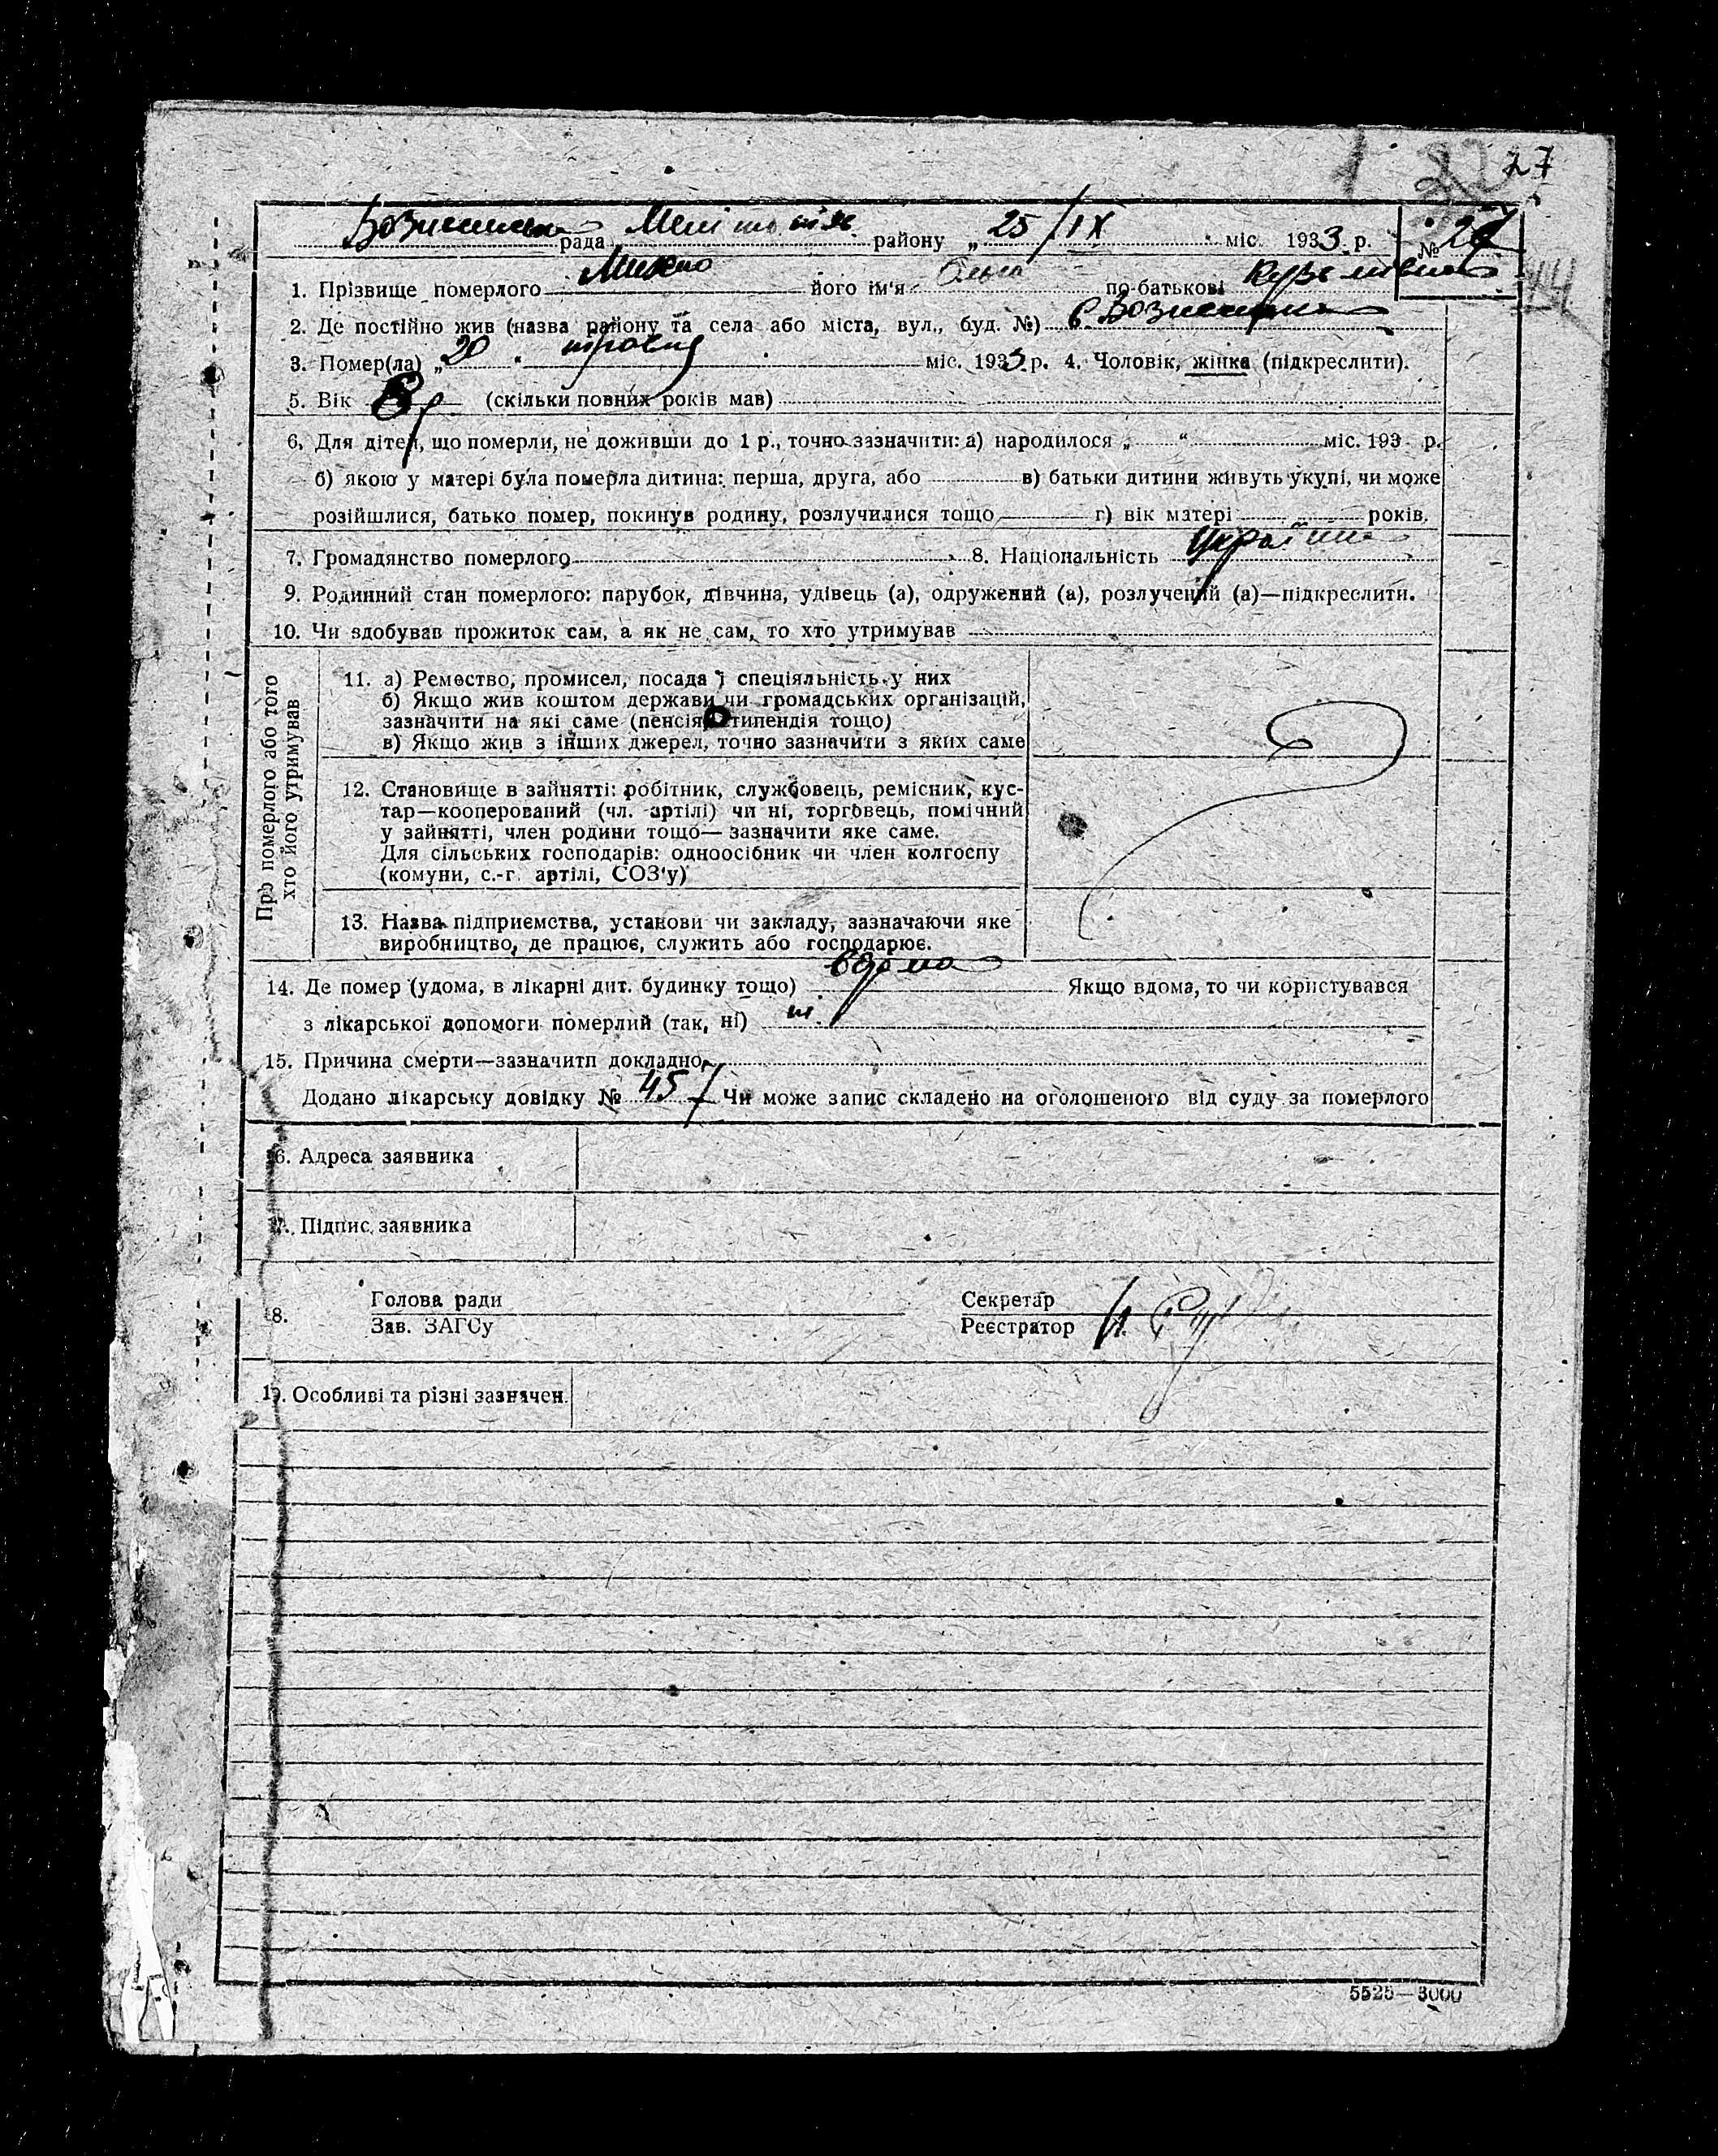 27
Вознесенська рада Мелітопіль. району „25/ІХ міс. 1933 р. № 27
1. Прізвище померлого Михно його ім'я Ольга по-батькові
2. Де постійно жив (назва району та села або міста, вул., буд. №) с Вознесенка
3. Помер(ла) „20 " травня міс. 1933 р. 4. Чоловік, жінка (підкреслити).
5. Вік 8 р (скільки повних років мав)
6. Для дітей, що померли, не доживши до 1 р., точно зазначити: а) народилося „ “ міс. 193 р.
б) якою у матері була померла дитина: перша, друга, або в) батьки дитини живуть укупі, чи може
розійшлися, батько помер, покинув родину, розлучилися тощо г) вік матері років.
7. Громадянство померлого 8. Національність
9. Родинний стан померлого: парубок, дівчина, удівець (а), одружений (а), розлучений (а)—підкреслити.
10. Чи здобував прожиток сам, а як не сам, то хто утримував
Про померлого або того
хто його утримував
11. а) Ремество, промисел, посада і спеціяльність у них
б) Якщо жив коштом держави чи громадських організацій,
зазначити на які саме (пенсія, стипендія тощо)
в) Якщо жив з інших джерел, точно зазначити з яких саме
12. Становище в зайнятті: робітник, службовець, ремісник, кус-
тар—кооперований (чл. артілі) чи ні, торговець, помічний
у зайнятті, член родини тощо— зазначити яке саме.
Для сільських господарів: одноосібник чи член колгоспу
(комуни, с.-г. артілі, СОЗ'у)
13. Назва підприємства, установи чи закладу, зазначаючи яке
виробництво, де працює, служить або господарює.
14. Де помер (удома, в лікарні дит. будинку тощо) вдома Якщо вдома, то чи користувався
з лікарської допомоги померлий (так, ні) ні
15. Причина смерти—зазначити докладно
Додано лікарську довідку № 45 Чи може запис складено на оголошеного від суду за померлого
6. Адреса заявника
7. Підпис заявника
8. Голова ради Секретар
Зав. ЗАГСу Реєстратор
19. Особливі та різні зазначен.
5525—3000